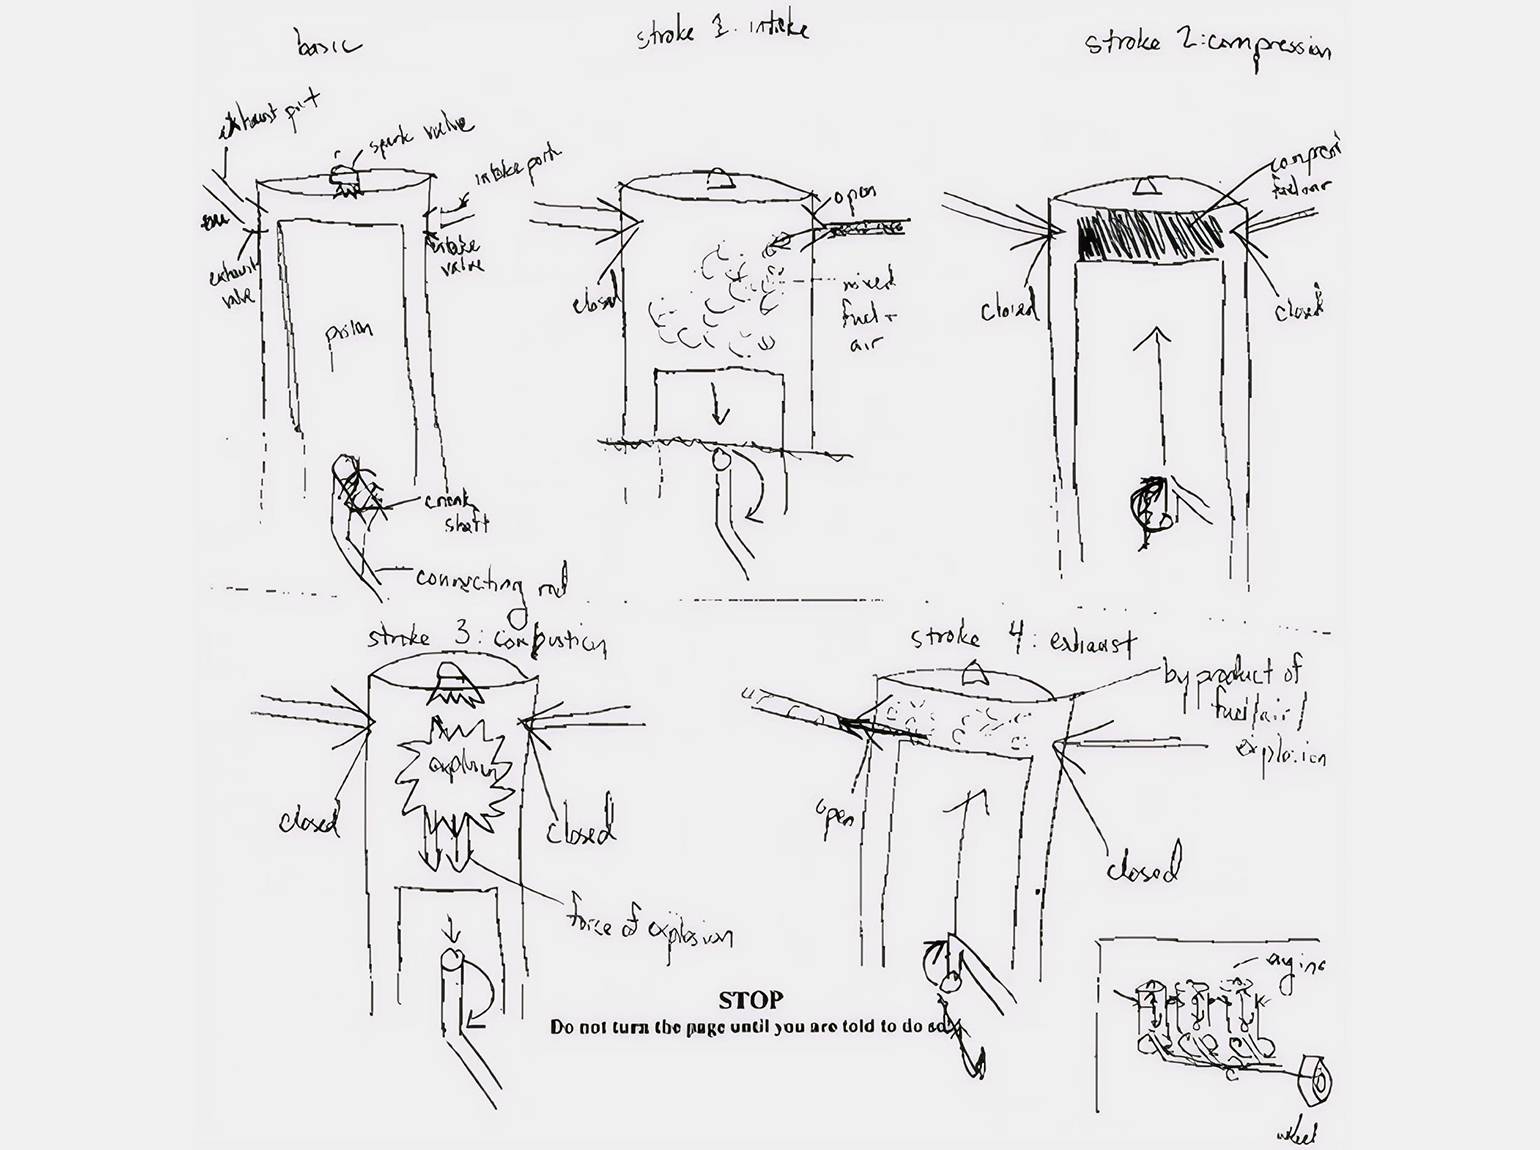 basic
stroke 1: intake
stroke 2: compression
exhaust port
spark valve
intake port
exhaust
valve
intake
valve
piston
crank
shaft
connecting rod
open
closed
mixed
fuel +
air
fuel air
closed
closed
stroke 3: combustion
explosion
closed
closed
force of explosion
stroke 4: exhaust
by product of
fuel/air/
explosion
open
closed
engine
wheel
STOP
Do not turn the page until you are told to do so.